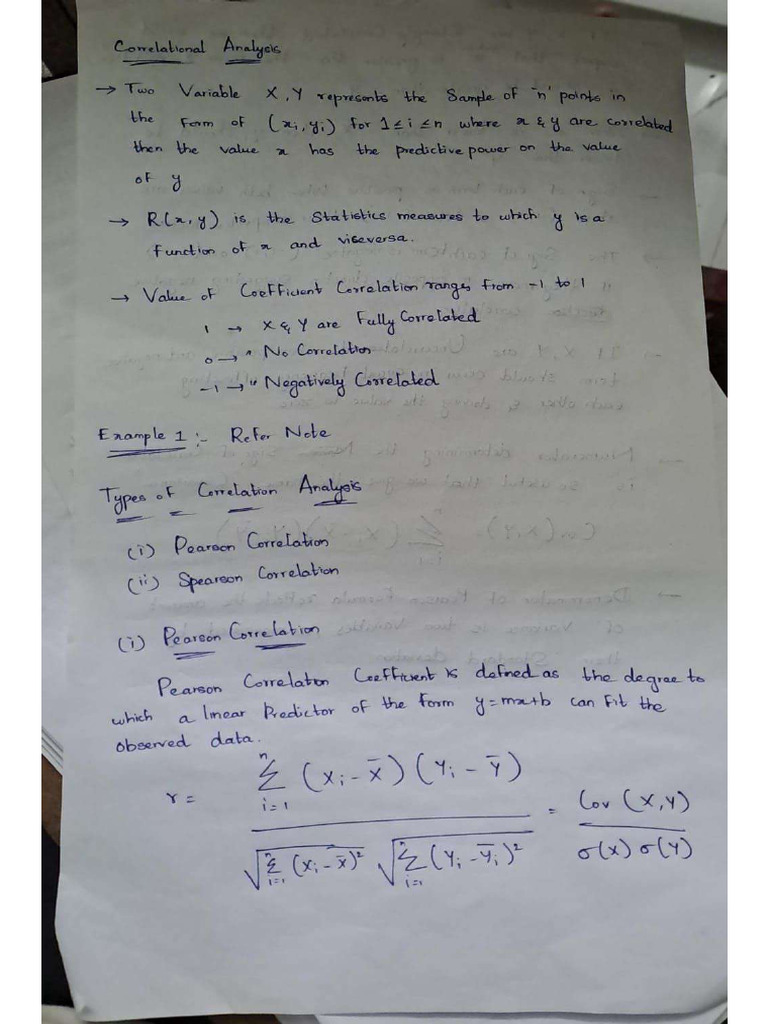 Correlational Analysis
→ Two Variable X, Y represents the Sample of 'n' points in
the form of (xi, yi) for 1 ≤ i ≤ n where x & y are correlated
then the value x has the predictive power on the value
of y
→ R(x, y) is the Statistics measures to which y is a
function of x and viseversa.
→ Value of Coefficient Correlation ranges from -1 to 1
1 → X & Y are Fully Correlated
0 → " No Correlation
-1 → " Negatively Correlated
Example 1 :- Refer Note
Types of Correlation Analysis
(i) Pearson Correlation
(ii) Spearson Correlation
(i) Pearson Correlation
Pearson Correlation Coefficient is defined as the degree to
which a linear Predictor of the form y=mx+b can fit the
observed data.
r = n Σ i=1 (Xi - X̄) (Yi - Ȳ) / √(n Σ i=1 (Xi - X̄)²) √(n Σ i=1 (Yi - Ȳi)²) = Cov (X, Y) / σ(X) σ(Y)